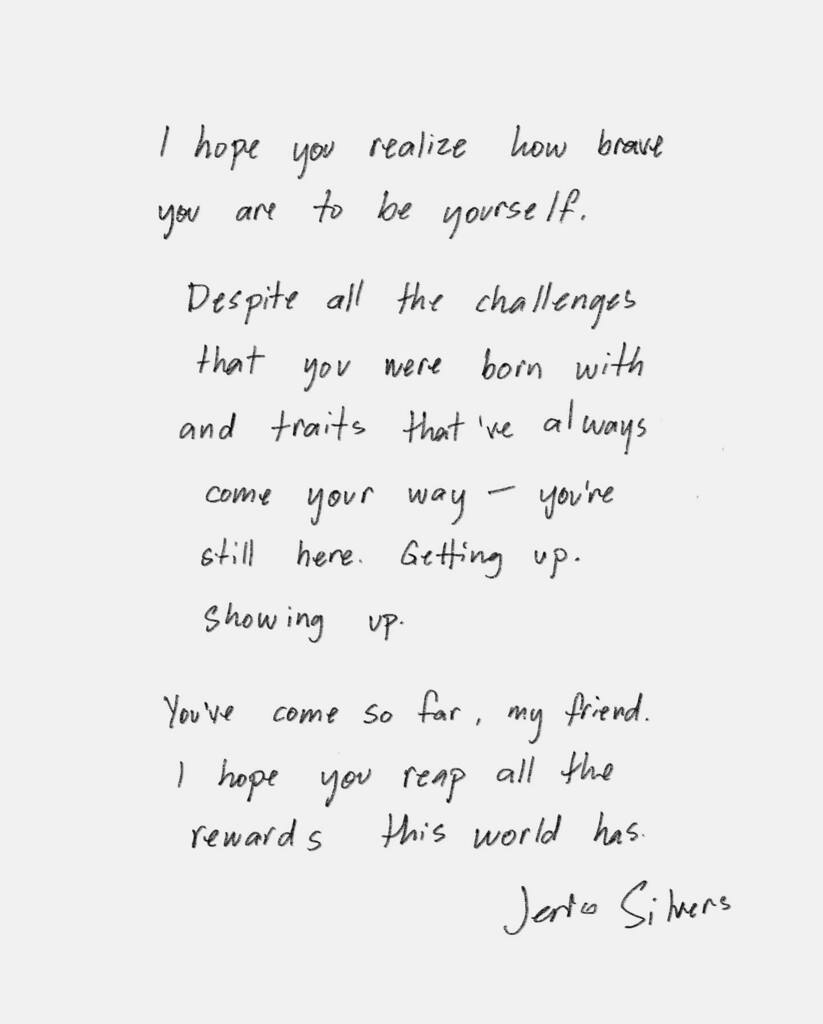 I hope you realize how brave
you are to be yourself.
Despite all the challenges
that you were born with
and traits that've always
come your way – you're
still here. Getting up.
Showing up.
You've come so far, my friend.
I hope you reap all the
rewards this world has.
Silvers